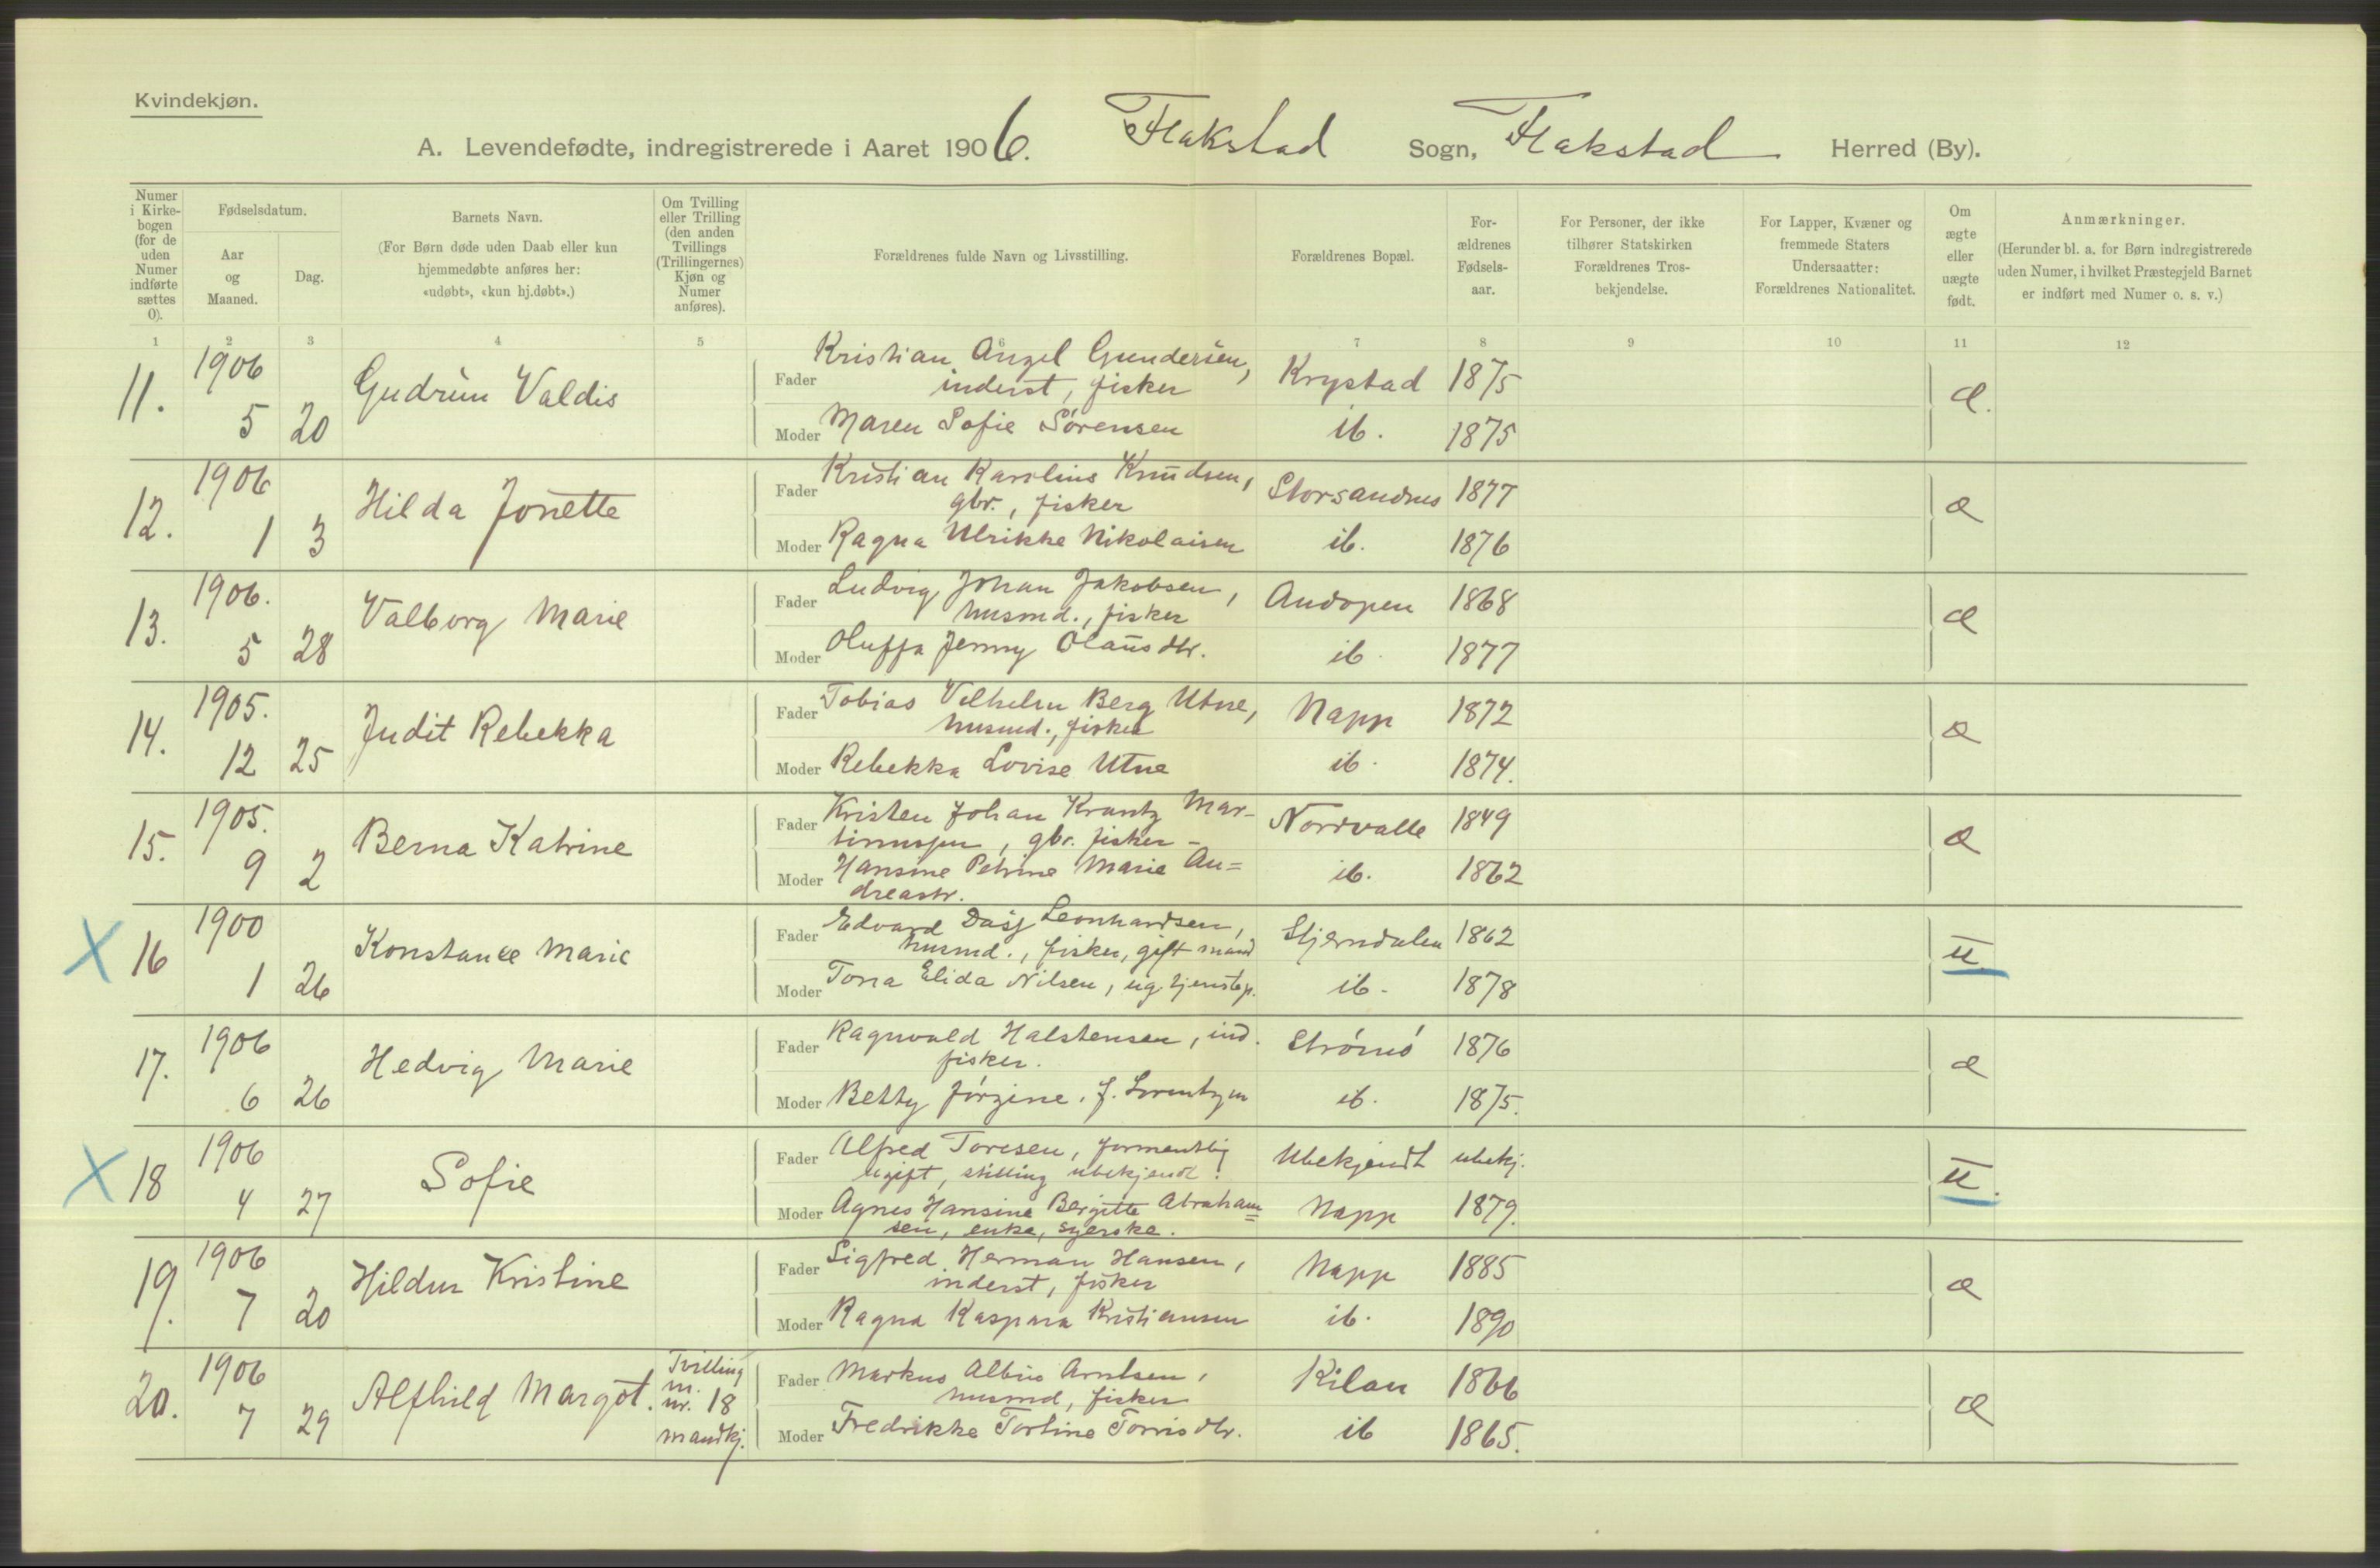 Kvindekjøn.
A. Levendefødte, indregistrerede i Aaret 1906. Flakstad Sogn, Flakstad Herred (By).
Numer i Kirkebogen (for de uden Numer indførte sættes 0).
Fødselsdatum.
Aar og Maaned.
Dag.
Barnets Navn.
(For Børn døde uden Daab eller kun hjemmedøbte anføres her: «udøbt», «kun hj.døbt».)
Om Tvilling eller Trilling (den anden Tvillings (Trillingernes) Kjøn og Numer anføres).
Forældrenes fulde Navn og Livsstilling.
Forældrenes Bopæl.
Forældrenes Fødselsaar.
For Personer, der ikke tilhører Statskirken Forældrenes Trosbekjendelse.
For Lapper, Kvæner og fremmede Staters Undersaatter: Forældrenes Nationalitet.
Om ægte eller uægte født.
Anmærkninger.
(Herunder bl. a. for Børn indregistrerede uden Numer, i hvilket Præstegjeld Barnet er indført med Numer o. s. v.)
1 2 3 4 5 6 7 8 9 10 11 12
11. 1906 5 20 Gudrun Valdis
Fader Kristian Angel Gundersen, inderst, fisker Krystad 1875 æ.
Moder Maren Sofie Sørensen ib. 1875
12. 1906 1 3 Hilda Jonette
Fader Kristian Karolius Knudsen, gbr., fisker Storsandnes 1877 æ
Moder Ragna Ulrikke Nikolaisen ib. 1876
13. 1906. 5 28 Valborg Marie
Fader Ludvig Johan Jakobsen, husmd., fisker Andopen 1868 æ
Moder Oluffa Jenny Olausdtr. ib. 1877
14. 1905. 12 25 Judit Rebekka
Fader Tobias Vilhelm Berg Utne, husmd., fisker Napp 1872 æ
Moder Rebekka Lovise Utne ib. 1874.
15. 1905. 9 2 Berna Katrine
Fader Kristen Johan Krantz Martinussen, gbr. fisker Nordvalle 1849 æ
Moder Hansine Petrine Marie Andreasdtr. ib. 1862
X 16 1900 1 26 Konstance Marie
Fader Edvard Leonhardsen, husmd., fisker, gift mand Stjerndalen 1862 u.
Moder Tora Elida Nilsen, ug. tjenestep. ib. 1878
17. 1906 6 26 Hedvig Marie
Fader Ragnvald Halstensen, ind. fisker. Strømø 1876 æ
Moder Betty Jørgine, f. Lorentzen ib. 1875.
X 18 1906 4 27 Sofie
Fader Alfred Toresen, formentlig ugift, stilling ubekjendt. Ubekjendt ubekj. u.
Moder Agnes Hansine Bergitte Abrahamsen, enke, syerske. Napp 1879.
19. 1906 7 20 Hildur Kristine
Fader Sigfred Herman Hansen, inderst, fisker Napp 1885 æ
Moder Ragna Kaspara Kristiansen ib. 1890
20. 1906 7 29 Alfhild Margot. Tvilling m. nr. 18 mandkj.
Fader Markus Albin Arntsen, husmd, fisker Kilan 1866 æ
Moder Fredrikke Torline Torrisdtr. ib 1865.